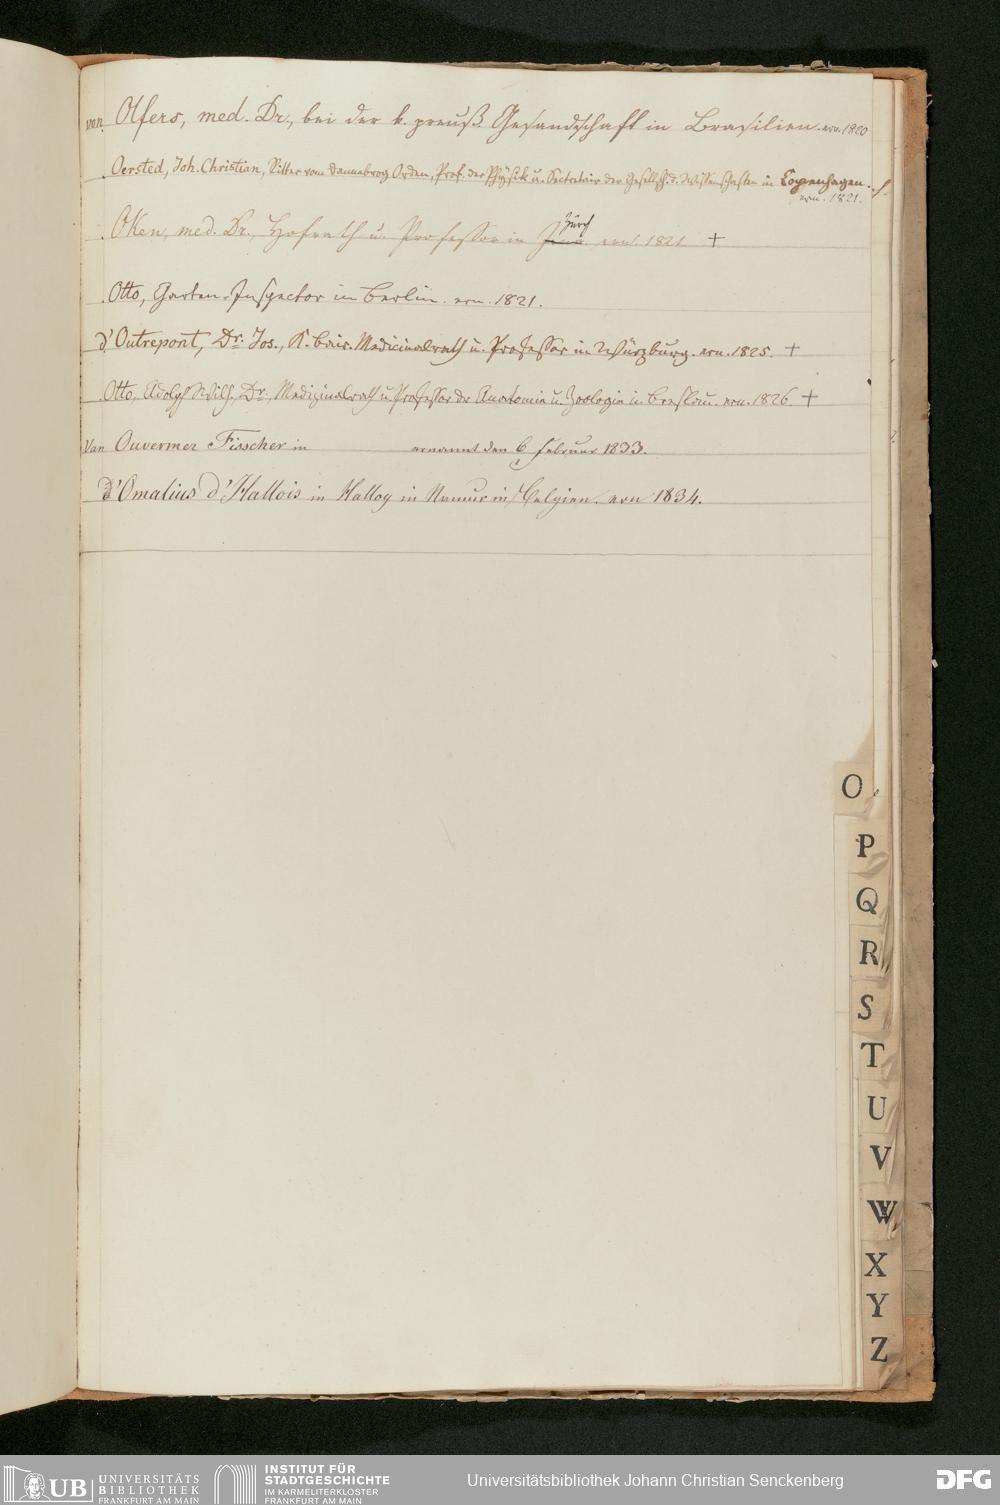 von Olfers, med. Dr., bei der k. preuß. Gesandschaft in Brasilien. ern. 1820
Oersted, Joh. Christian, Ritter vom Dannebrog Orden, Prof. der Physik u. Secretair der Gesellsch. d. Wissenschaften in Copenhagen.
ern. 1821.
Zürch
Oken, med. Dr., Hofrath u. Professor in Jena. ern. 1821 †
Otto, Garten-Inspector in Berlin. ern. 1821.
d'Outrepont, Dr. Jos., K. bair. Medicinalrath u. Professor in Würzburg. ern. 1825. †
Otto, Adolph Wilh., Dr., Medizinalrath u. Professor der Anatomie u. Zoologie in Breslau. ern. 1826. †
Van Ouvermer Fisscher in ernannt den 6 Februar 1833.
D'Omalius d'Hallois in Halloy in Namur in Belgien. ern 1834.
O
P
Q
R
S
T
U
V
W
X
Y
Z
UB UNIVERSITÄTS
BIBLIOTHEK
FRANKFURT AM MAIN
INSTITUT FÜR
STADTGESCHICHTE
IM KARMELITERKLOSTER
FRANKFURT AM MAIN
Universitätsbibliothek Johann Christian Senckenberg
DFG